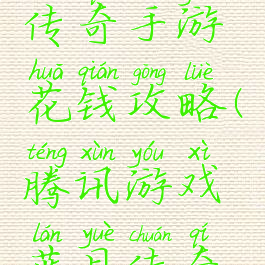 传奇手游
huā qián gōng lüè
花钱攻略(
téng xùn yóu xì
腾讯游戏
lán yuè chuán qí
蓝月传奇